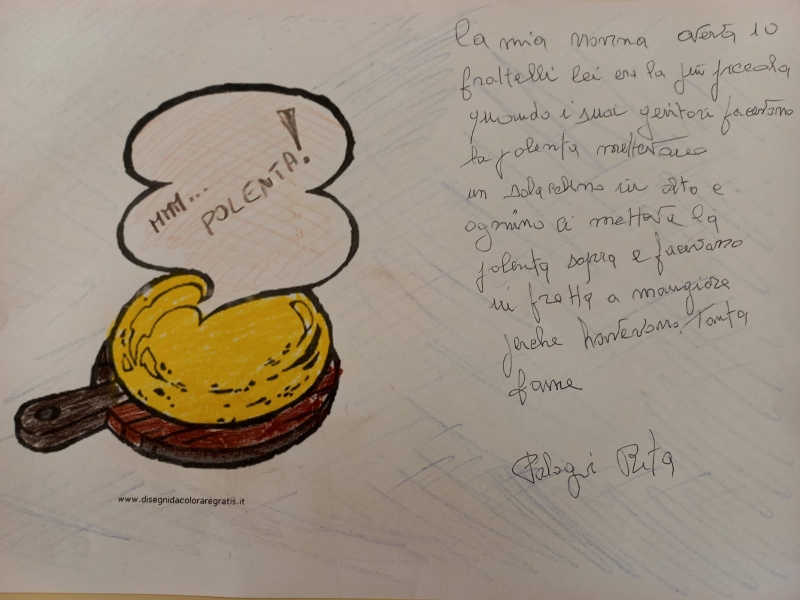 MMM...
POLENTA!
www.disegnidacoloraregratis.it
la mia nonna aveva 10
fraltelli lei era la più piccola
quando i suoi genitori facevano
la polenta mettevano
un in alto e
ognuno ci metteva la
polenta sopra e facevano
in fretta a mangiare
perche havevano tanta
fame
Rita